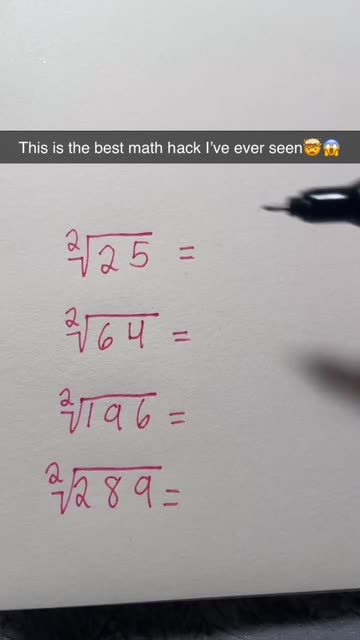 This is the best math hack I've ever seen🤯😱
²√25 =
²√64 =
²√196 =
²√289 =